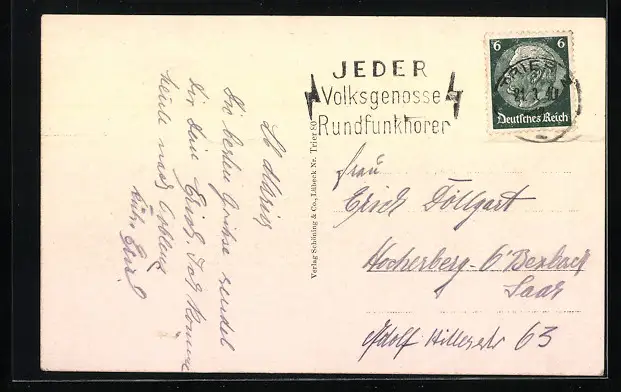 JEDER
Volksgenosse
Rundfunkhörer
6 6
TRIER
Deutsches Reich
Verlag Schöning & Co., Lübeck Nr. Trier 80
Lb. Maria
Die besten Grüße sendet
Dir Dein Erich. Bad komme
heute nach Coblenz
Erich
Frau
Erich Döllgart
Höcherberg - b/ Bexbach
Saar
Adolf Hitlerstr 63